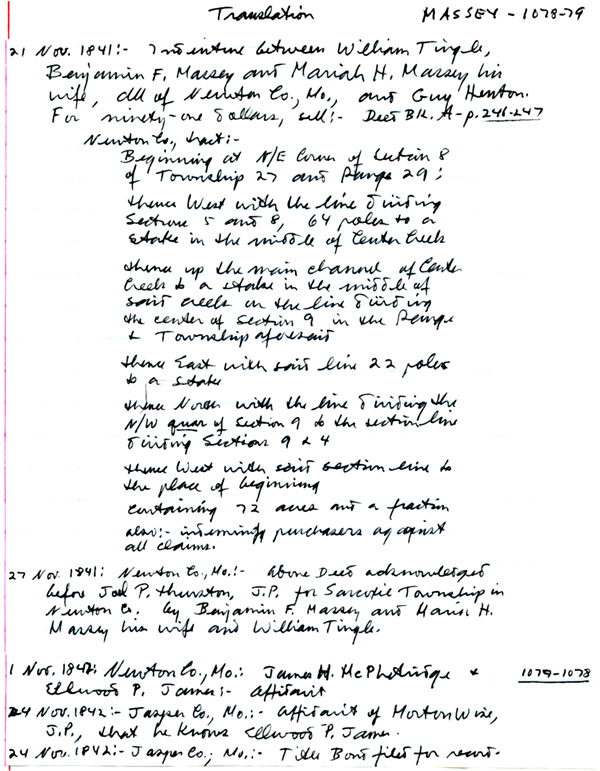 Translation MASSEY - 1078-79
21 Nov. 1841:- Indenture between William Tingle,
Benjamin F. Massey and Mariah H. Massey his
wife, all of Newton Co., Mo., and Guy Henton.
For ninety-one dollars, sell:- Deed BK. A-p. 246-247
Newton Co., tract:-
Beginning at N/E Corner of Section 8
of Township 27 and Range 29;
thence West with the line dividing
Sections 5 and 8, 64 poles to a
stake in the middle of Center Creek
thence up the main channel of Center
Creek to a stake in the middle of
said creek on the line dividing
the center of Section 9 in the Range
& Township aforesaid
thence East with said line 22 poles
to a stake
thence North with the line dividing the
N/W quar of Section 9 to the section line
dividing Sections 9 & 4
thence West with said section line to
the place of beginning
containing 72 acres and a fraction
also:- indemnify purchasers against
all claims.
27 Nov. 1841: Newton Co., Mo.:- above Deed acknowledged
before Joel P. Thurston, J.P. for Sarcoxie Township in
Newton Co. by Benjamin F. Massey and Maria H.
Massey his wife and William Tingle.
1 Nov. 1842: Newton Co., Mo.: James H. McPhetridge & 1079-1078
Ellwood P. James:- affidavit
24 Nov. 1842:- Jasper Co., Mo.:- affidavit of Morton Wise,
J.P., that he knows Ellwood P. James.
24 Nov. 1842:- Jasper Co., Mo.:- Title Bond filed for record.